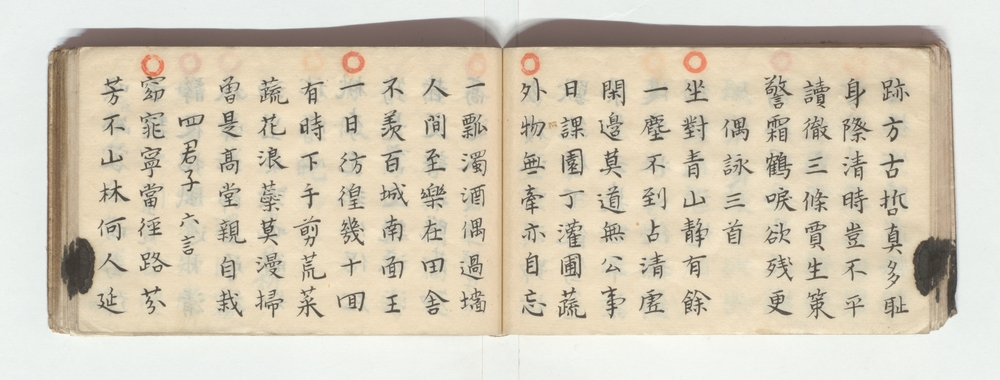 跡方古哲真多耻
身際清時豈不平
讀徹三條賈生策
警霜鶴唳欲残更
偶詠三首
坐對青山静有餘
一塵不到占清虚
閑邊莫道無公事
日課園丁灌圃蔬
外物無牽亦自忘
一瓢濁酒偶過墻
人間至樂在田舎
不羨百城南面王
一日彷徨幾十回
有時下手剪荒菜
蔬花浪蘂莫漫掃
曽是髙堂親自栽
四君子 六言
窈窕寧當徑路芬
芳不山林何人延